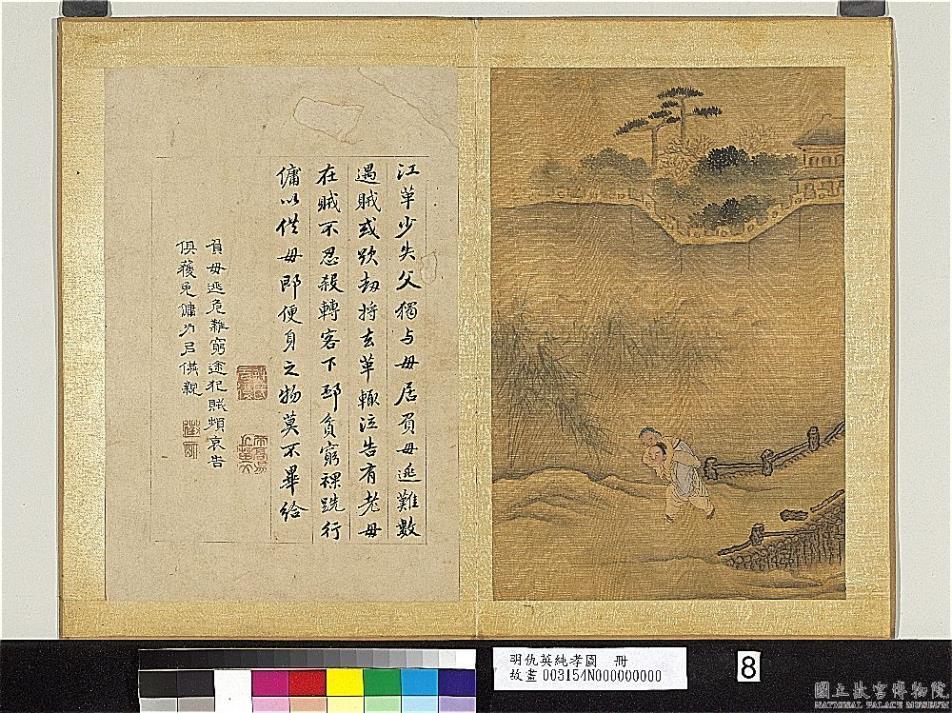 江革少失父獨与母居負母逃難數
遇賊或欲劫將去革輒泣告有老母
在賊不忍殺轉客下邳貧窮裸跣行
傭以供母即便身之物莫不畢給
負母逃危難窮途犯賊頻哀告
俱獲免傭力以供親
明仇英純孝圖 冊
故畫 003154N000000000
8
國立故宮博物院
NATIONAL PALACE MUSEUM